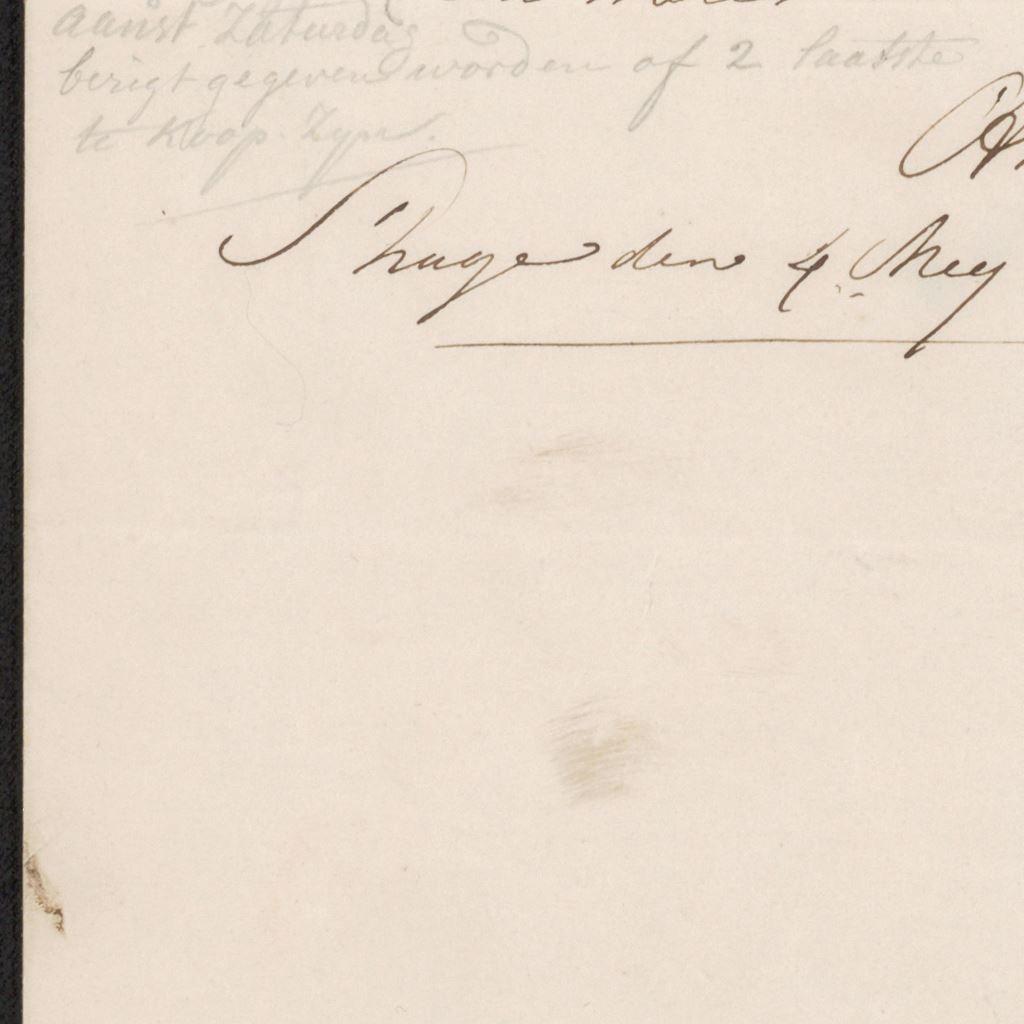 aanst. Zaturdag
berigt gegeven worden of 2 laatste
te Koop Zyn.
S'hage den 4 Mey